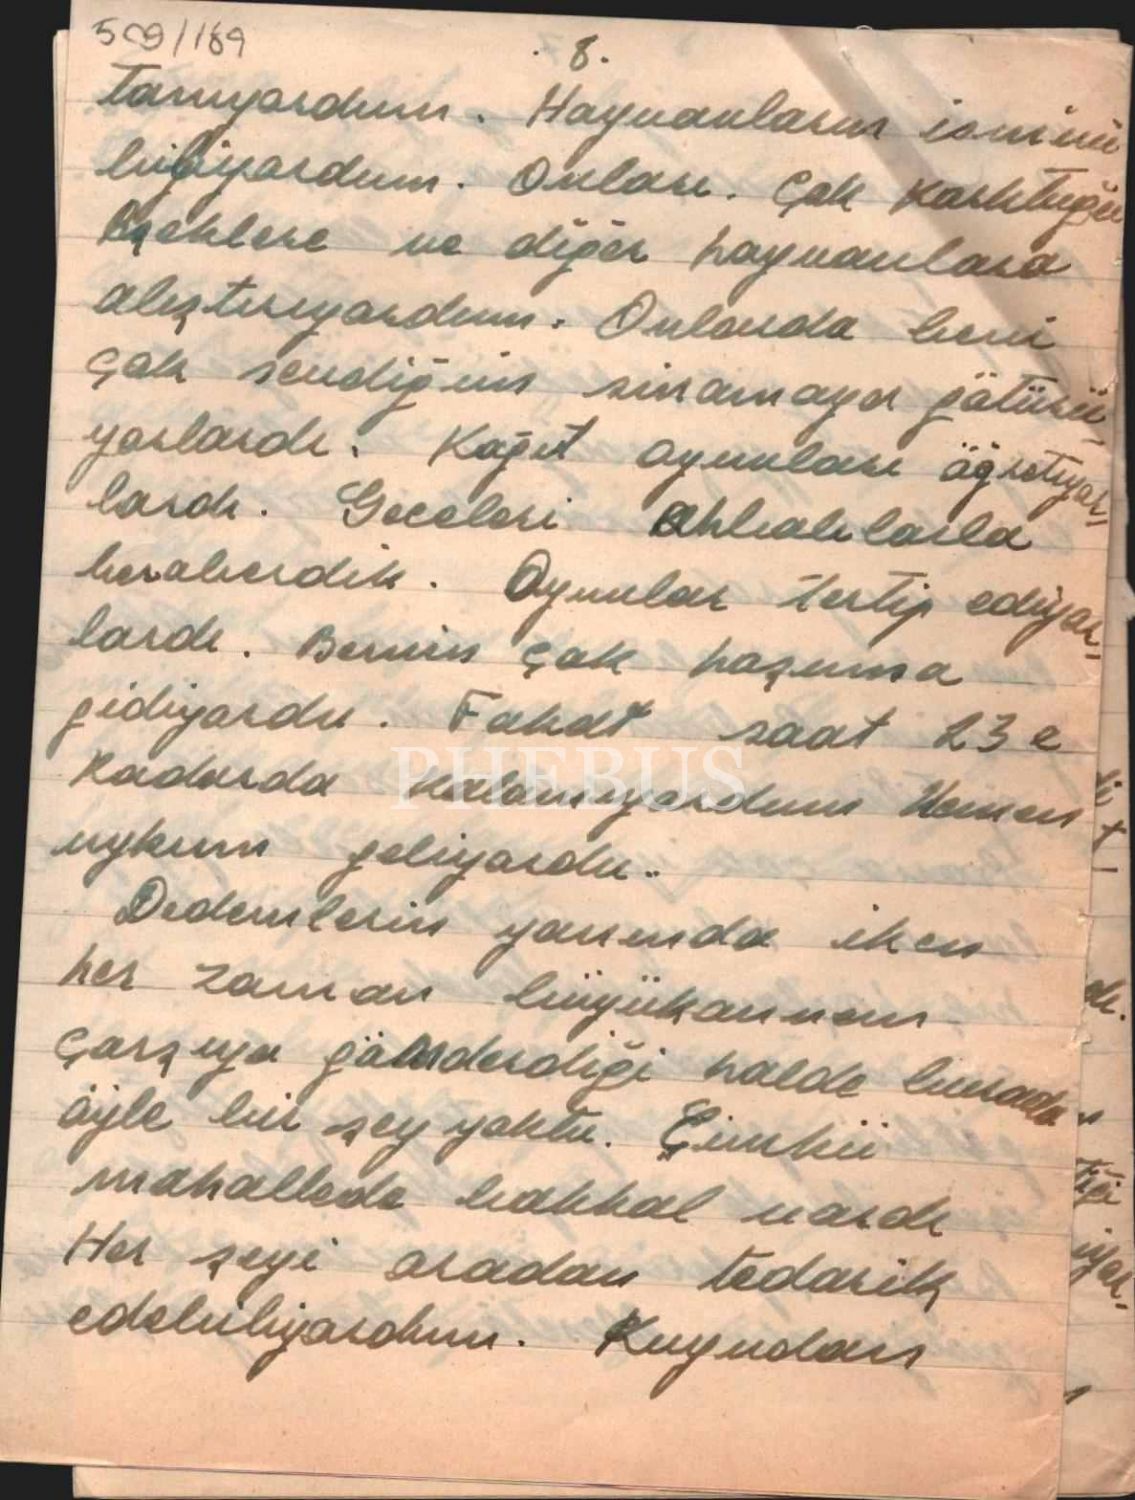 509/189
. 8.
tanıyordum. Hayvanların ismini
biliyordum. Onları. Çok korktuğu
Böceklere ve diğer hayvanlara
alıştırıyordum. Onlarda beni
çok sevdiğim sinamaya götürü-
yorlardı. Kağıt oyunları öğretiyor-
lardı. Geceleri Ahbablarla
beraberdik. Oyunlar tertip ediyor-
lardı. Benim çok hoşuma
gidiyordu. Fakat saat 23 e
Kadarda kalamıyordum Hemen
uykum geliyordu..
Dedemlerin yanında iken
her zaman büyükannem
çarşıya gönderdiği halde burada
öyle bir şey yoktu. Çünkü
mahallede bakkal vardı
Her şeyi oradan tedarik
edebiliyordum. Kuyudan
PHEBUS